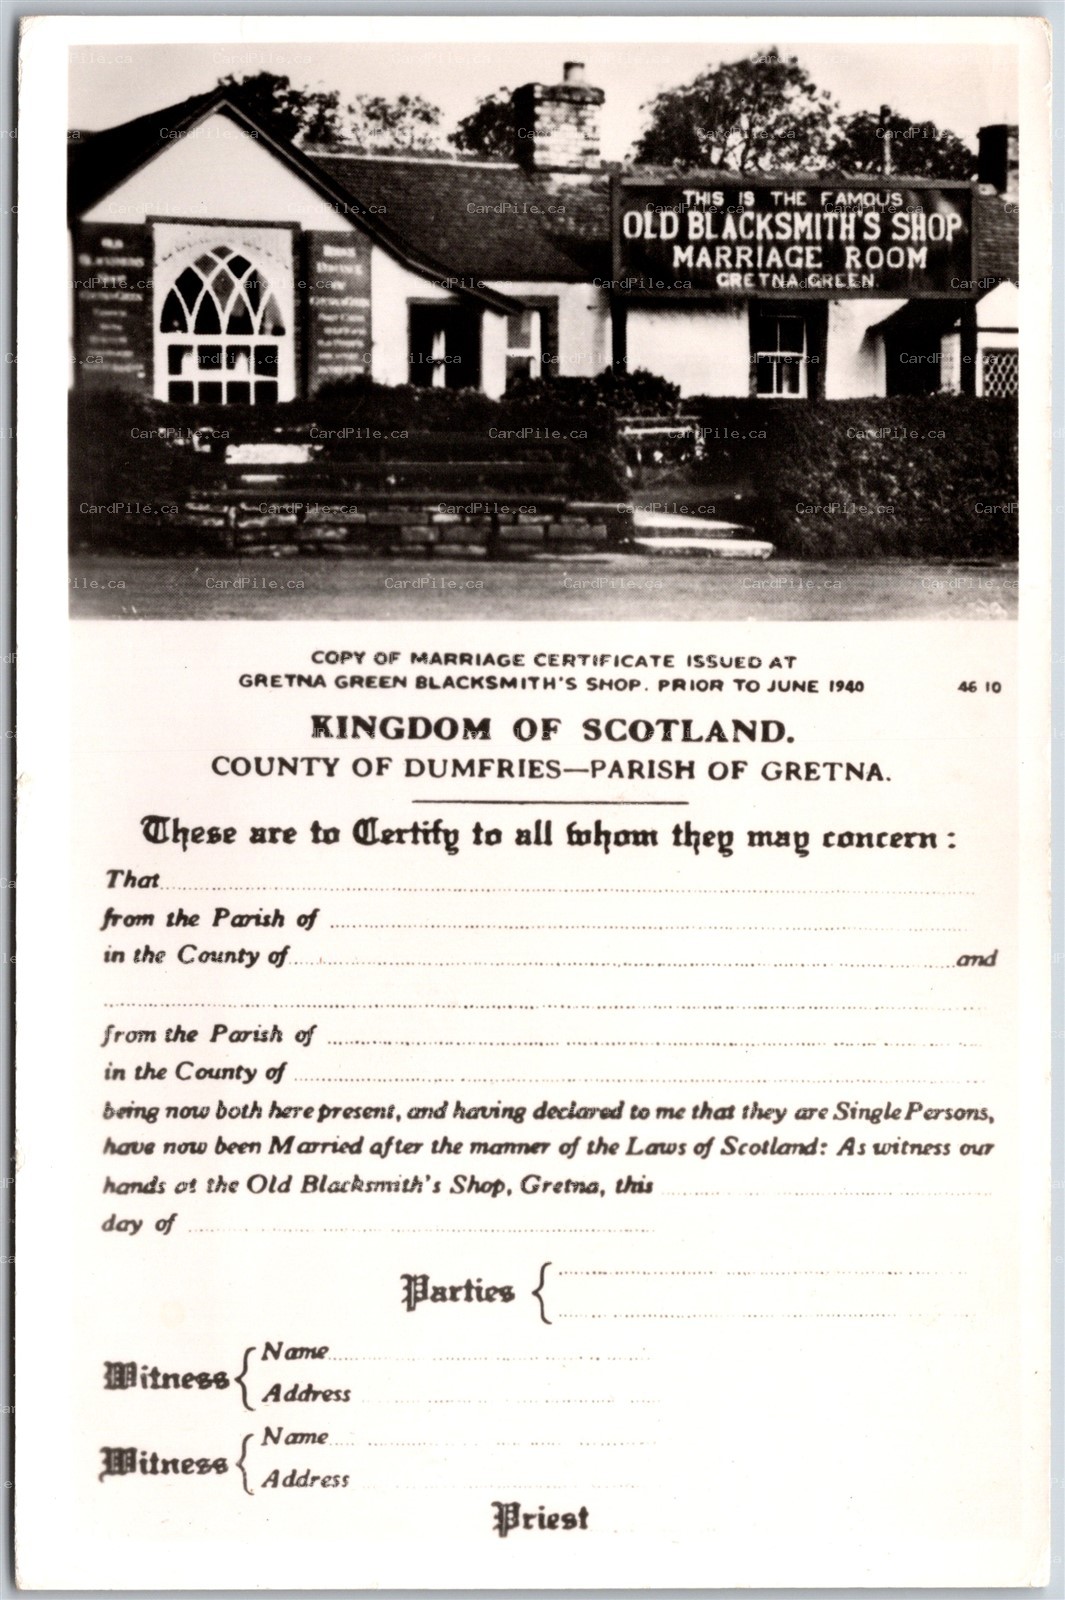 THIS IS THE FAMOUS
OLD BLACKSMITH'S SHOP
MARRIAGE ROOM
GRETNA GREEN.
COPY OF MARRIAGE CERTIFICATE ISSUED AT
GRETNA GREEN BLACKSMITH'S SHOP. PRIOR TO JUNE 1940
46 10
KINGDOM OF SCOTLAND.
COUNTY OF DUMFRIES—PARISH OF GRETNA.
These are to Certify to all whom they may concern :
That
from the Parish of
in the County of and
from the Parish of
in the County of
being now both here present, and having declared to me that they are Single Persons,
have now been Married after the manner of the Laws of Scotland: As witness our
hands at the Old Blacksmith's Shop, Gretna, this
day of
Parties
Witness
Name
Address
Witness
Name
Address
Priest
CardPile.ca